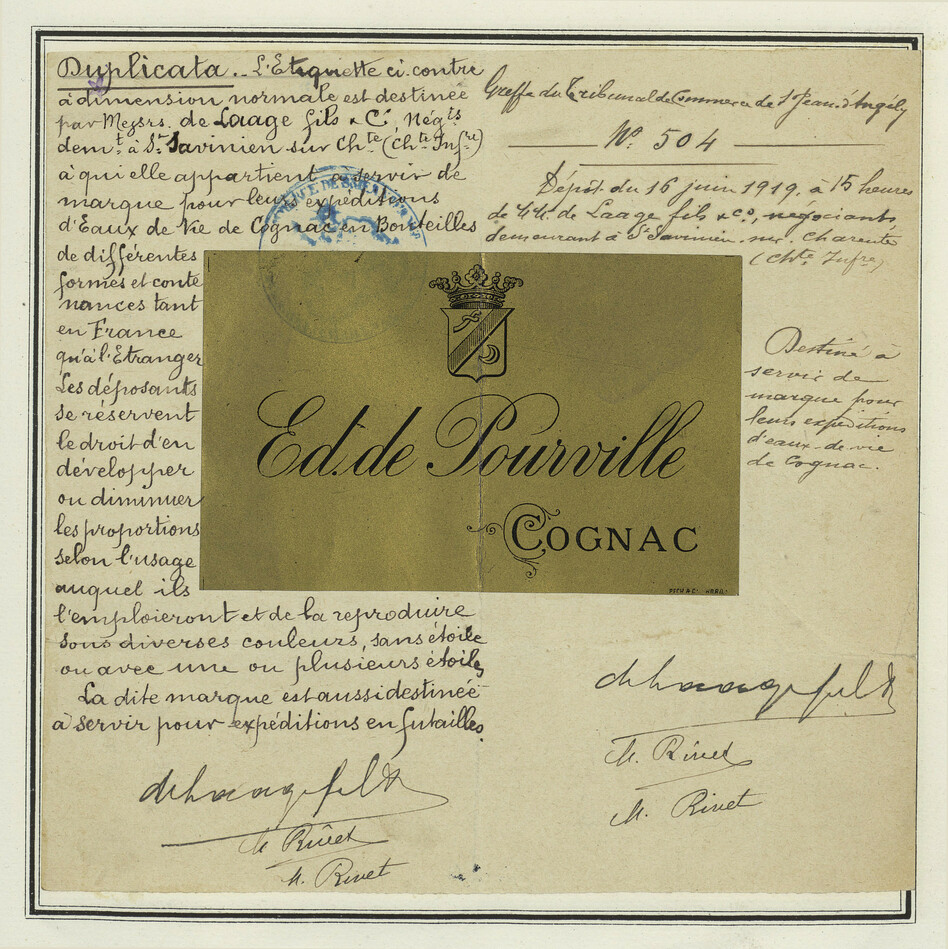 Duplicata.. L'Etiquette ci. contre
à dimension normale est destinée
par Messrs. de Laage fils & Cie. Négts
demt. à St. Savinien sur Chte (Chte Infre)
à qui elle appartient à servir de
marque pour leurs expéditions
d'Eaux de Vie de Cognac en Bouteilles
de différentes
formes et conte
nances tant
en France
qu'à l'Etranger
Les déposants
se réservent
le droit d'en
développer
ou diminuer
les proportions
selon l'usage
auquel ils
l'emploieront et de la reproduire
sous diverses couleurs, sans étoile
ou avec une ou plusieurs étoiles
La dite marque est aussi destinée
à servir pour expéditions en futailles.
de Laage fils & Co
M. Rivet
M. Rivet
Greffe du Tribunal de Commerce de St Jean d'Angély
No. 504
Dépôt du 16 juin 1919, à 15 heures
de MM. de Laage fils & Co, négociants
demeurant à St Savinien sur Charente
(Chte Infre)
Ed. de Pourville
COGNAC
Destiné à
servir de
marque pour
leurs expéditions
d'eaux-de-vie
de Cognac.
de Laage fils & Co
M. Rivet
M. Rivet